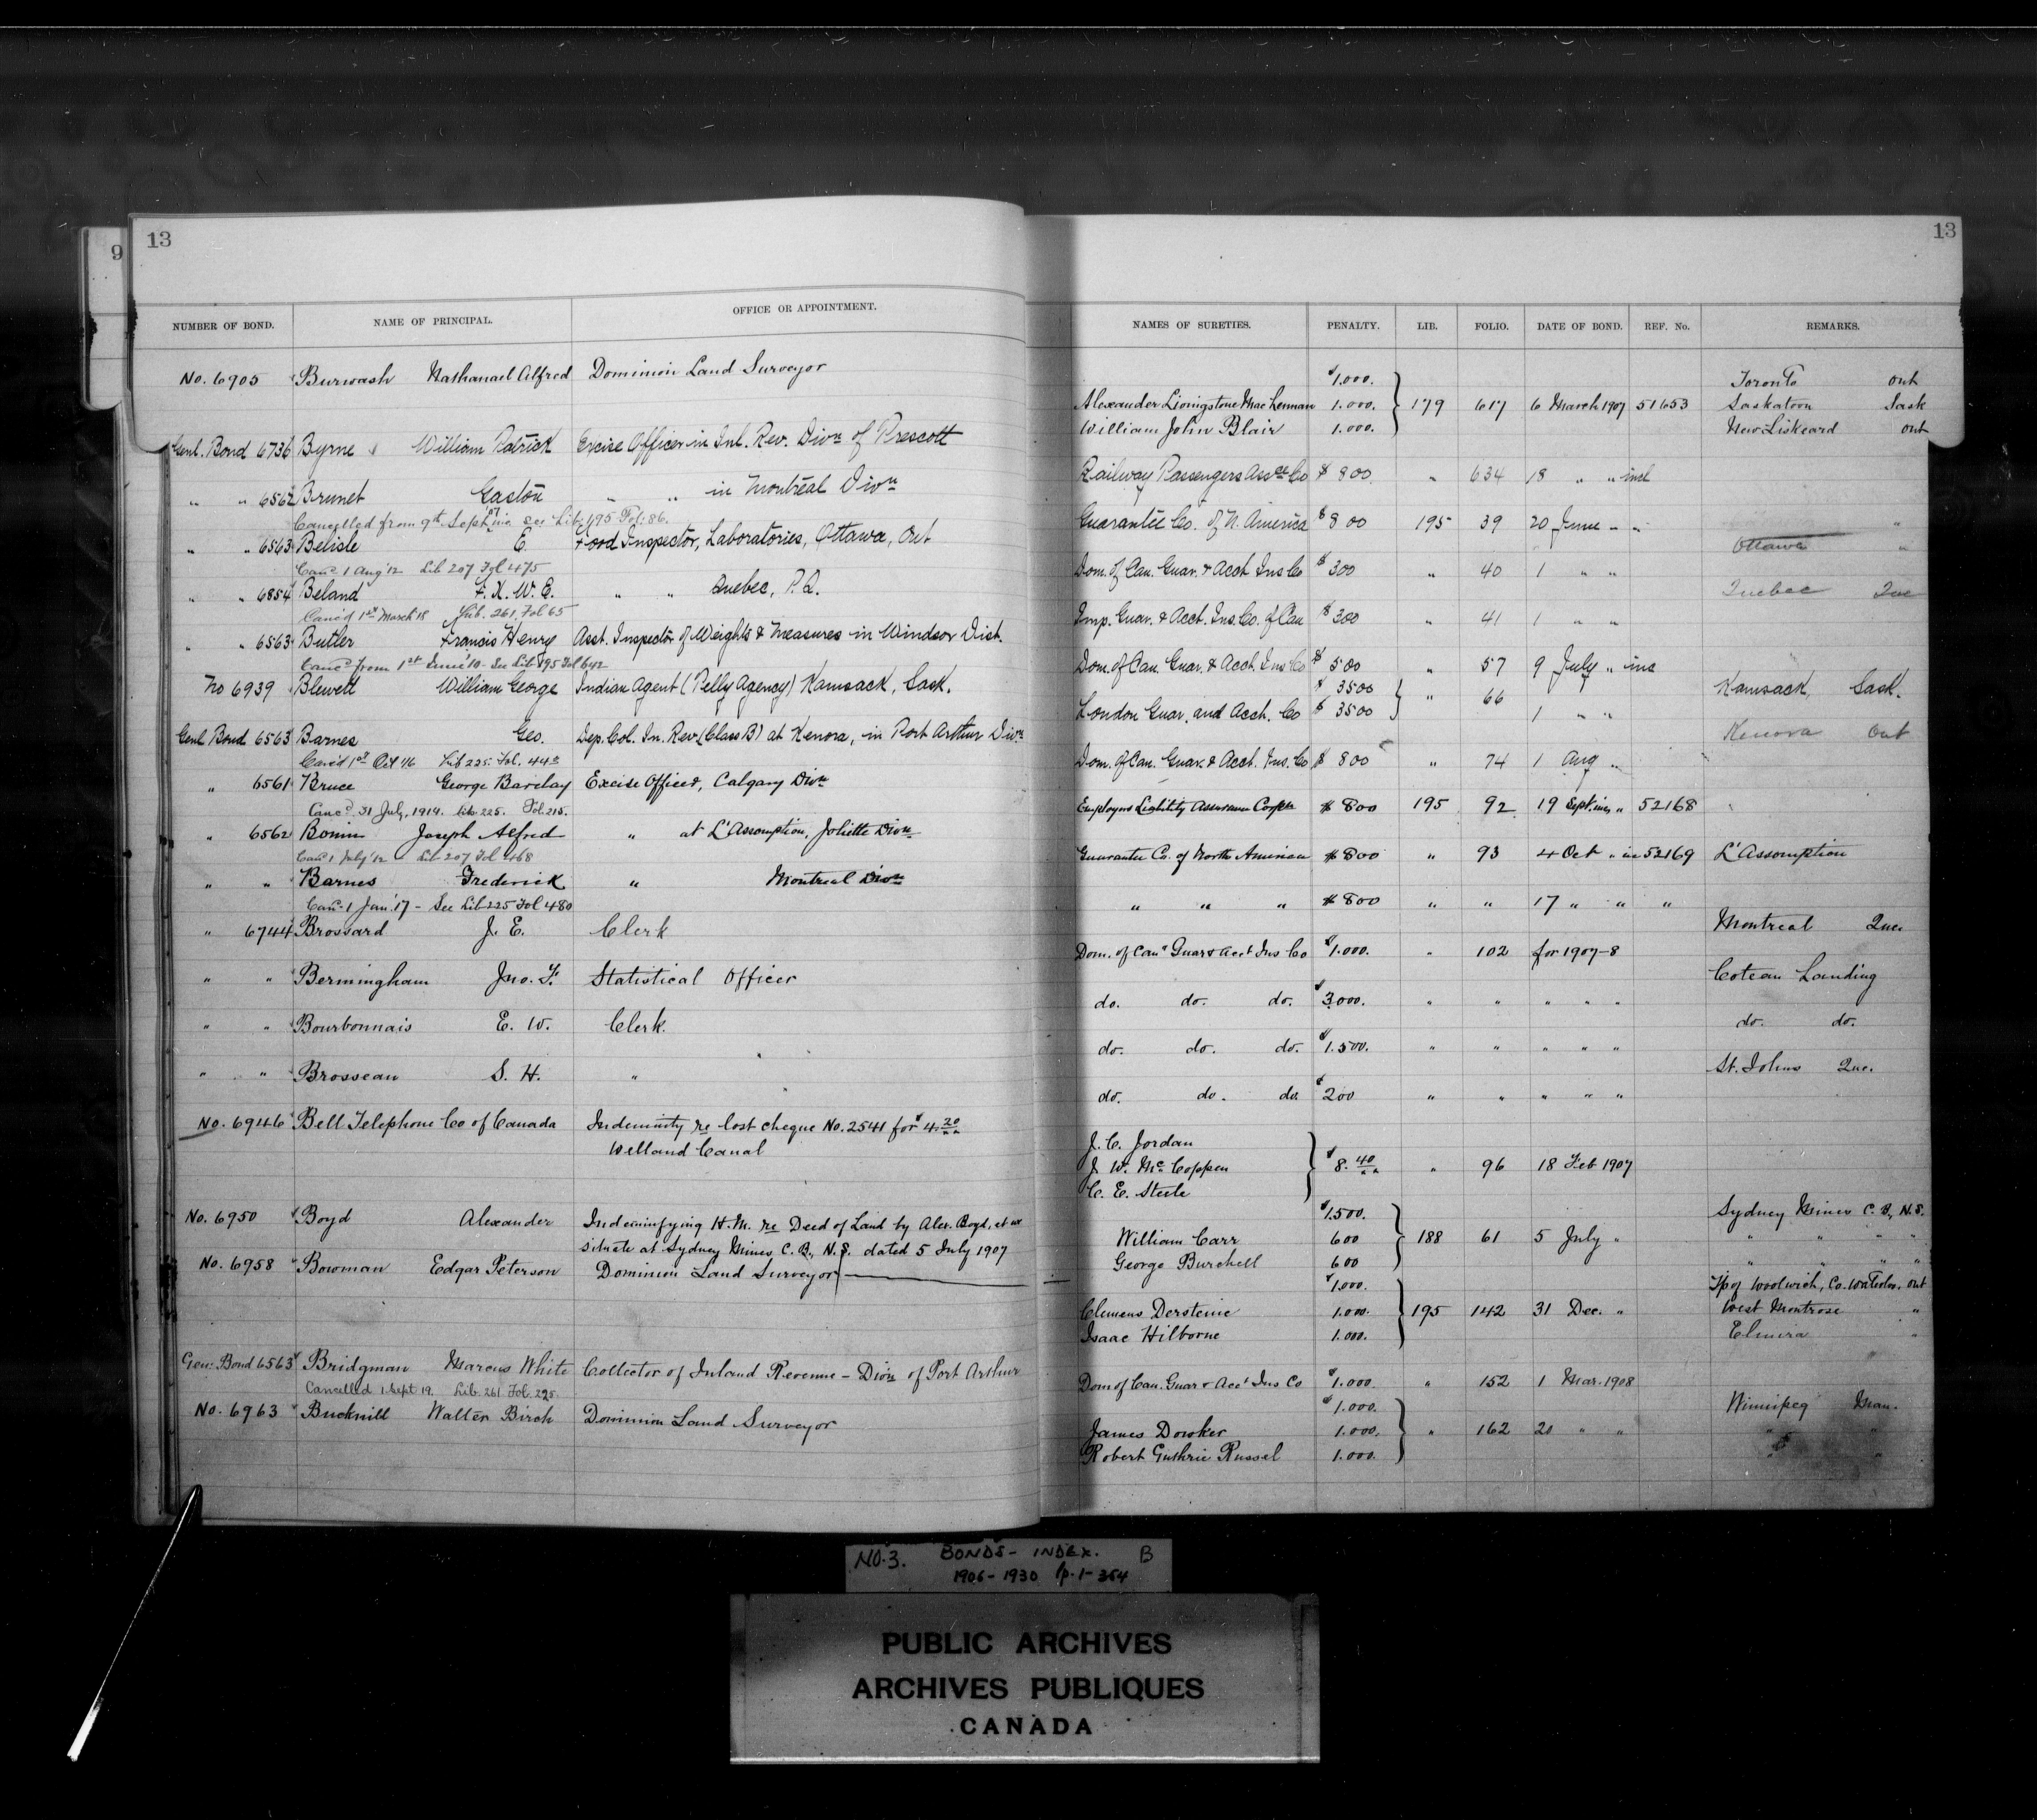 9
13
NUMBER OF BOND. NAME OF PRINCIPAL. OFFICE OR APPOINTMENT.
No. 6905 Burwash Nathanael Alfred Dominion Land Surveyor
Genl. Bond 6736 Byrne William Patrick Excise Officer in Inl. Rev. Divn of Prescott
" " 6562 Brunet Gaston " " in Montréal Divn
Cancelled from 9th Sept. inc. see Lib. 195 Fol. 86.
" " 6563 Belisle E. Food Inspector, Laboratories, Ottawa, Ont
Canc. 1 Aug '12 Lib 207 Fol 475
" " 6854 Beland F. X. W. E. " " Quebec, P.Q.
Canc'd 1st March 18 Lib. 261, Fol 65
" " 6563 Butler Francis Henry Asst. Inspector of Weights & Measures in Windsor Dist.
Cancd from 1st June '10 - See Lib 195 Fol 642
No 6939 Blewett William George Indian Agent (Pelly Agency) Kamsack, Sask.
Genl Bond 6563 Barnes Geo. Dep. Col. In. Rev. (Class B) at Kenora, in Port Arthur Divn
Canc'd 1st Oct '16 Lib 225. Fol. 442
" 6561 Bruce George Barclay Excise Officer, Calgary Divn
Cancd. 31 July, 1914. Lib. 225. Fol. 215.
" 6562 Bonin Joseph Alfred " at L'Assomption, Joliette Divn
Canc 1 July '12 Lib 207 Fol 468
" " Barnes Frederick " Montreal Divn
Canc. 1 Jan. '17 - See Lib 225 Fol 480
" 6744 Brossard J. E. Clerk
" " Bermingham Jno. F. Statistical Officer
" " Bourbonnais E. W. Clerk.
" " Brosseau S. H. "
No. 6946 Bell Telephone Co of Canada Indemnity re lost cheque No. 2541 for $4.20
Welland Canal
No. 6950 Boyd Alexander Indemnifying H.M. re Deed of Land by Alex. Boyd, et ux
situate at Sydney Mines C.B., N.S. dated 5 July 1907
No. 6958 Bowman Edgar Peterson Dominion Land Surveyor
Gen. Bond 6563 Bridgman Marcus White Collector of Inland Revenue - Divn of Port Arthur
Cancelled 1 Sept 19. Lib. 261 Fol. 295.
No. 6963 Bucknill Walter Birch Dominion Land Surveyor
13
NAMES OF SURETIES. PENALTY. LIB. FOLIO. DATE OF BOND. REF. No. REMARKS.
$1.000. Toronto Ont
Alexander Livingstone MacLennan 1.000. 179 617 6 March 1907 51653 Saskatoon Sask
William John Blair 1.000. New Liskeard Ont
Railway Passengers Assce Co $800. " 634 18 " " incl
Guarantee Co. of N. America $800 195 39 20 June " "
Ottawa "
Dom. of Can. Guar. & Acct Ins Co $300 " 40 1 " "
Quebec Que
Imp. Guar. & Acct. Ins. Co. of Can $300 " 41 1 " "
Dom. of Can. Guar. & Acct. Ins Co $500 " 57 9 July " inc
$3500 " 66 Kamsack, Sask.
London Guar. and Acct. Co $3500 1 " "
Kenora Ont
Dom. of Can. Guar. & Acct. Ins. Co $800 " 74 1 Aug "
Employers Liability Assurance Corpn $800 195 92 19 Sept. inc " 52168
Guarantee Co. of North America $800 " 93 4 Oct " inc 52169 L'Assomption
" " " $800 " " 17 " " "
Montreal Que.
Dom. of Can. Guar & Acct Ins Co $1.000. " 102 for 1907-8
Coteau Landing
do. do. do. $3.000. " " " " "
do. do.
do. do. do. $1.500. " " " " "
St. Johns Que.
do. do. do. $200 " " " " "
J. C. Jordan
J. W. McCoppen $8.40 " 96 18 Feb 1907
C. E. Steele
$1.500. Sydney Mines C.B., N.S.
William Carr 600 188 61 5 July " " " " "
George Burchell 600 " " " "
$1.000. Tp of Woolwich, Co. Waterloo, Ont
Clemens Dersteine 1.000. 195 142 31 Dec. " West Montrose "
Isaac Hilborne 1.000. Elmira "
Dom of Can. Guar & Acct Ins Co $1.000. " 152 1 Mar. 1908
$1.000. Winnipeg Man.
James Dowker 1.000. " 162 20 " " " "
Robert Guthrie Russel 1.000. " "
NO. 3. BONDS - INDEX. B
1906-1930 p. 1-354
PUBLIC ARCHIVES
ARCHIVES PUBLIQUES
CANADA